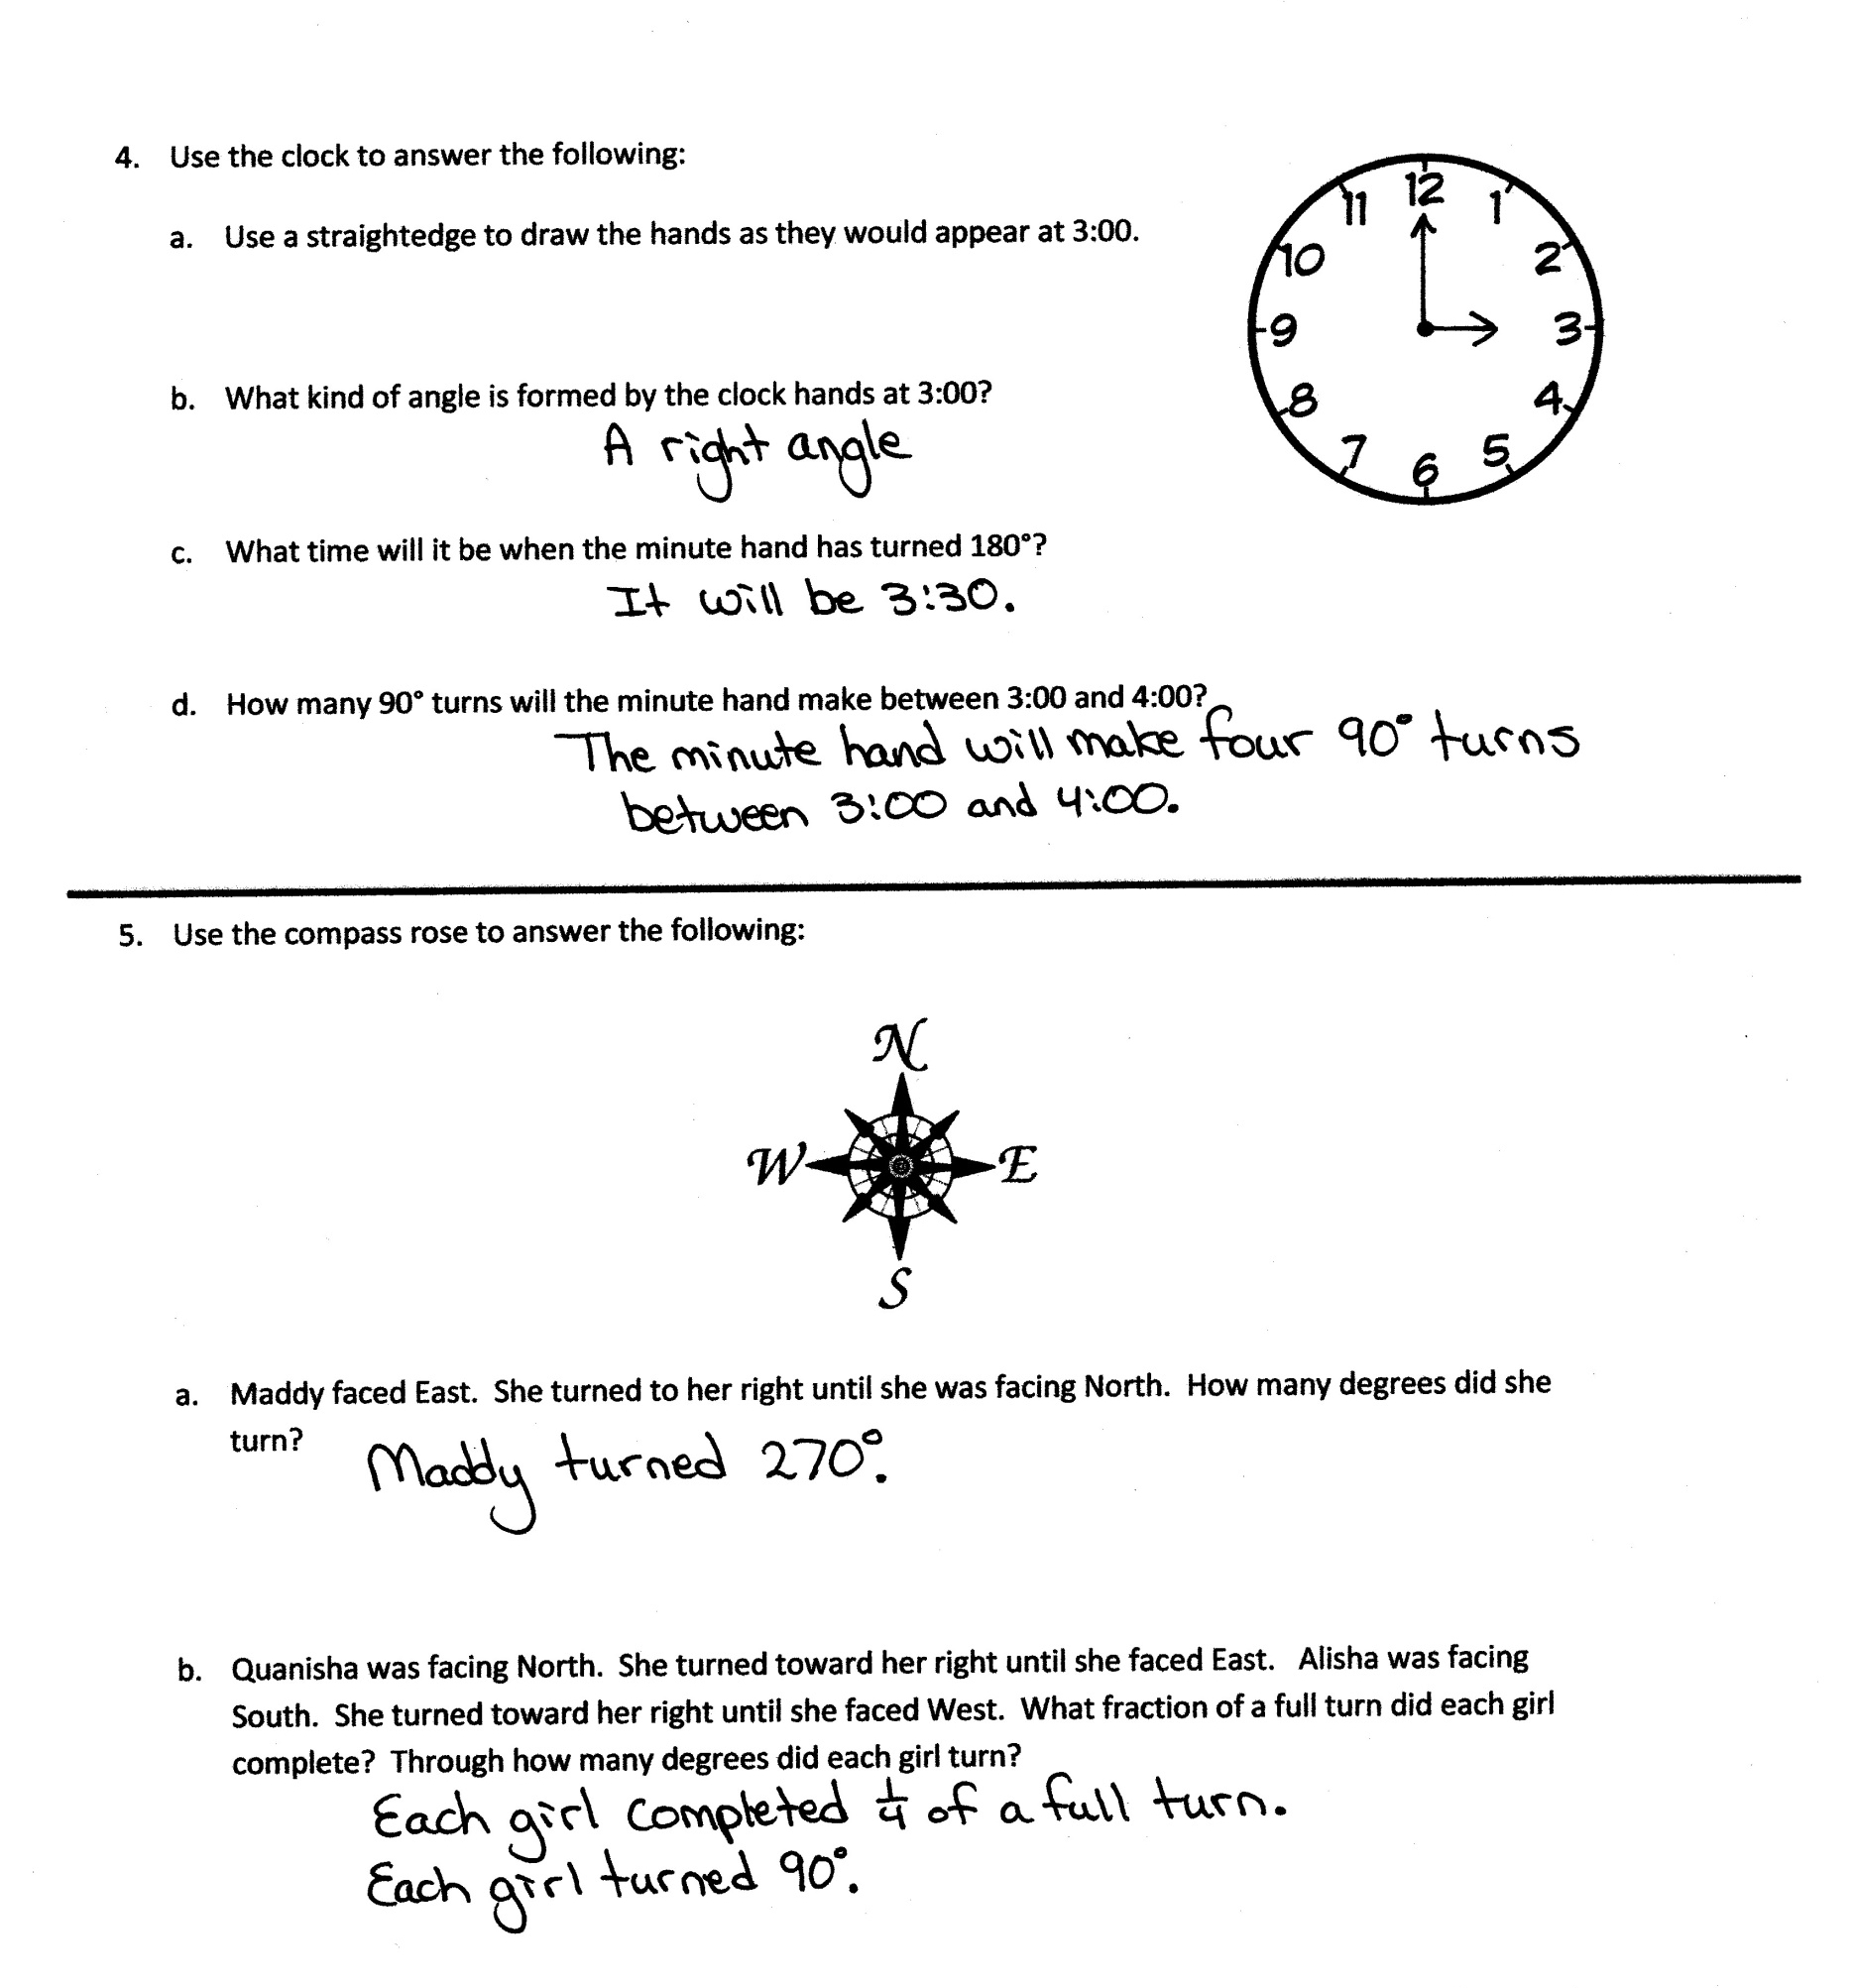 4. Use the clock to answer the following:
a. Use a straightedge to draw the hands as they would appear at 3:00.
12
11
1
10
2
9
3
8
4
7
5
6
b. What kind of angle is formed by the clock hands at 3:00?
A right angle
c. What time will it be when the minute hand has turned 180°?
It will be 3:30.
d. How many 90° turns will the minute hand make between 3:00 and 4:00?
The minute hand will make four 90° turns
between 3:00 and 4:00.
5. Use the compass rose to answer the following:
N
W E
S
a. Maddy faced East. She turned to her right until she was facing North. How many degrees did she
turn?
Maddy turned 270°.
b. Quanisha was facing North. She turned toward her right until she faced East. Alisha was facing
South. She turned toward her right until she faced West. What fraction of a full turn did each girl
complete? Through how many degrees did each girl turn?
Each girl completed 1/4 of a full turn.
Each girl turned 90°.